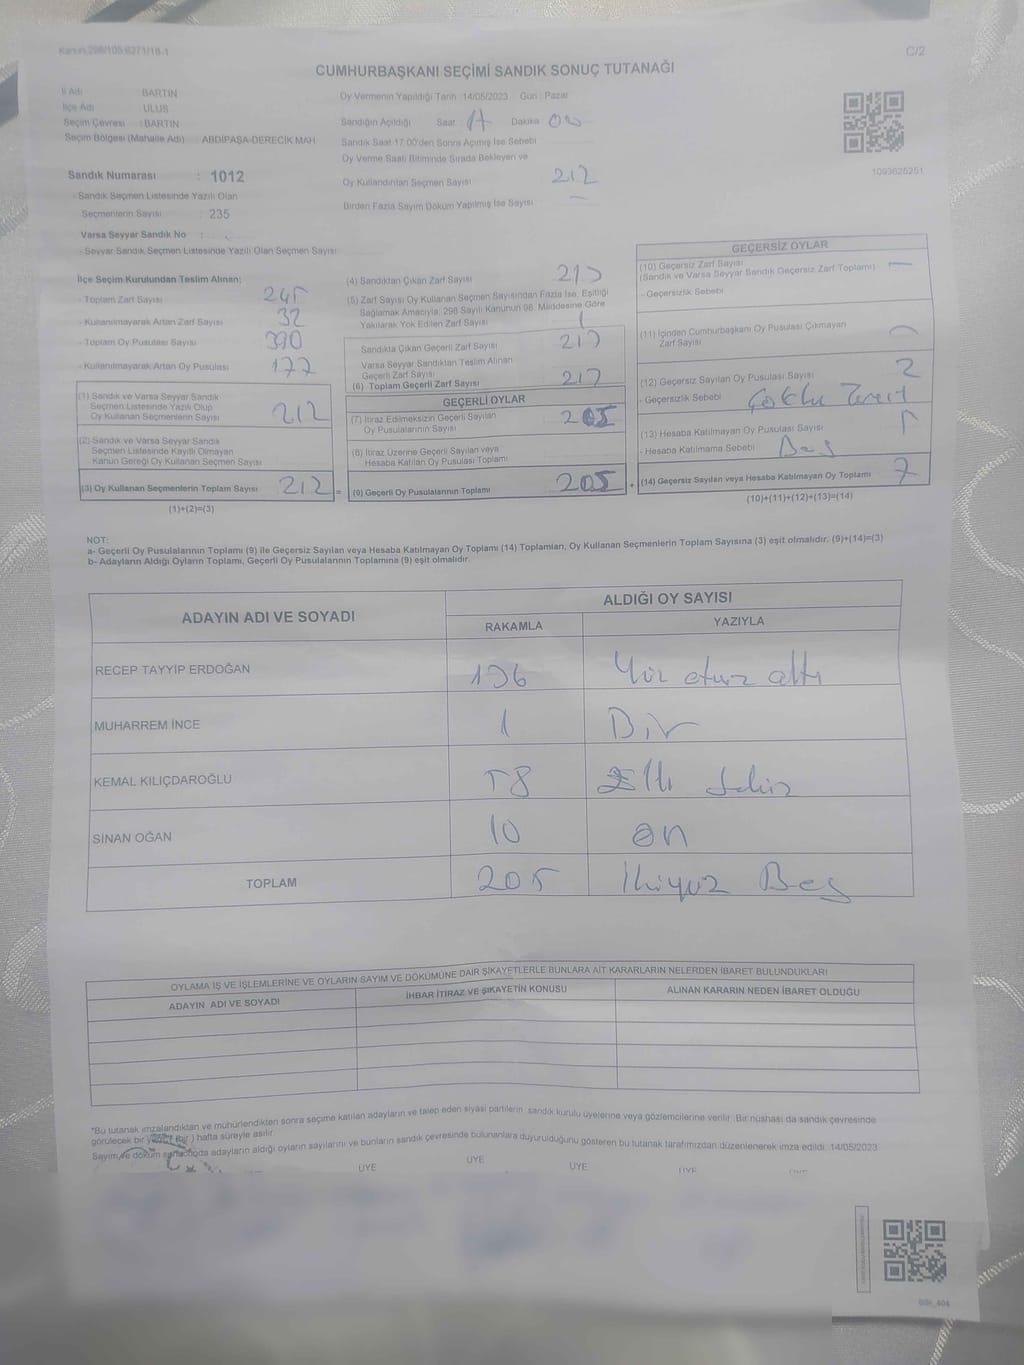 Kanun:298/105:6271/18-1
C/2
CUMHURBAŞKANI SEÇİMİ SANDIK SONUÇ TUTANAĞI
İl Adı BARTIN
İlçe Adı ULUS
Seçim Çevresi : BARTIN
Seçim Bölgesi (Mahalle Adı) ABDİPAŞA-DERECİK MAH
Sandık Numarası : 1012
- Sandık Seçmen Listesinde Yazılı Olan
Seçmenlerin Sayısı : 235
Varsa Seyyar Sandık No :
- Seyyar Sandık Seçmen Listesinde Yazılı Olan Seçmen Sayısı
Oy Vermenin Yapıldığı Tarih :14/05/2023 Gün : Pazar
Sandığın Açıldığı Saat 17 Dakika 00
Sandık Saat 17:00'den Sonra Açılmış İse Sebebi
Oy Verme Saati Bitiminde Sırada Bekleyen ve
Oy Kullandırılan Seçmen Sayısı 212
Birden Fazla Sayım Döküm Yapılmış İse Sayısı —
1093625251
İlçe Seçim Kurulundan Teslim Alınan;
- Toplam Zarf Sayısı 245
- Kullanılmayarak Artan Zarf Sayısı 32
- Toplam Oy Pusulası Sayısı 390
- Kullanılmayarak Artan Oy Pusulası 177
(1) Sandık ve Varsa Seyyar Sandık
Seçmen Listesinde Yazılı Olup
Oy Kullanan Seçmenlerin Sayısı 212
(2) Sandık ve Varsa Seyyar Sandık
Seçmen Listesinde Kayıtlı Olmayan
Kanun Gereği Oy Kullanan Seçmen Sayısı
(3) Oy Kullanan Seçmenlerin Toplam Sayısı 212 =
(1)+(2)=(3)
(4) Sandıktan Çıkan Zarf Sayısı
(5) Zarf Sayısı Oy Kullanan Seçmen Sayısından Fazla İse, Eşitliği
Sağlamak Amacıyla; 298 Sayılı Kanunun 98. Maddesine Göre
Yakılarak Yok Edilen Zarf Sayısı 1
Sandıkta Çıkan Geçerli Zarf Sayısı
Varsa Seyyar Sandıktan Teslim Alınan
Geçerli Zarf Sayısı
(6) Toplam Geçerli Zarf Sayısı
GEÇERLİ OYLAR
(7) İtiraz Edilmeksizin Geçerli Sayılan
Oy Pusulalarının Sayısı 205
(8) İtiraz Üzerine Geçerli Sayılan veya
Hesaba Katılan Oy Pusulası Toplamı
(9) Geçerli Oy Pusulalarının Toplamı 205 +
GEÇERSİZ OYLAR
(10) Geçersiz Zarf Sayısı
(Sandık ve Varsa Seyyar Sandık Geçersiz Zarf Toplamı) —
- Geçersizlik Sebebi
(11) İçinden Cumhurbaşkanı Oy Pusulası Çıkmayan
Zarf Sayısı —
(12) Geçersiz Sayılan Oy Pusulası Sayısı 2
- Geçersizlik Sebebi Çoklu
(13) Hesaba Katılmayan Oy Pusulası Sayısı 5
- Hesaba Katılmama Sebebi Beş
(14) Geçersiz Sayılan veya Hesaba Katılmayan Oy Toplamı 7
(10)+(11)+(12)+(13)=(14)
NOT:
a- Geçerli Oy Pusulalarının Toplamı (9) ile Geçersiz Sayılan veya Hesaba Katılmayan Oy Toplamı (14) Toplamları, Oy Kullanan Seçmenlerin Toplam Sayısına (3) eşit olmalıdır. (9)+(14)=(3)
b- Adayların Aldığı Oyların Toplamı, Geçerli Oy Pusulalarının Toplamına (9) eşit olmalıdır.
ADAYIN ADI VE SOYADI
ALDIĞI OY SAYISI
RAKAMLA YAZIYLA
RECEP TAYYİP ERDOĞAN 136 Yüz otuz altı
MUHARREM İNCE 1 Bir
KEMAL KILIÇDAROĞLU 58 Elli Sekiz
SİNAN OĞAN 10 on
TOPLAM 205 İkiyüz Beş
OYLAMA İŞ VE İŞLEMLERİNE VE OYLARIN SAYIM VE DÖKÜMÜNE DAİR ŞİKAYETLERLE BUNLARA AİT KARARLARIN NELERDEN İBARET BULUNDUKLARI
ADAYIN ADI VE SOYADI İHBAR İTİRAZ VE ŞİKAYETİN KONUSU ALINAN KARARIN NEDEN İBARET OLDUĞU
*Bu tutanak imzalandıktan ve mühürlendikten sonra seçime katılan adayların ve talep eden siyasi partilerin sandık kurulu üyelerine veya gözlemcilerine verilir. Bir nüshası da sandık çevresinde
görülecek bir yere (bir) hafta süreyle asılır.
Sayım ve döküm sonucunda adayların aldığı oyların sayılarını ve bunların sandık çevresinde bulunanlara duyurulduğunu gösteren bu tutanak tarafımızdan düzenlenerek imza edildi. 14/05/2023
ÜYE ÜYE ÜYE ÜYE